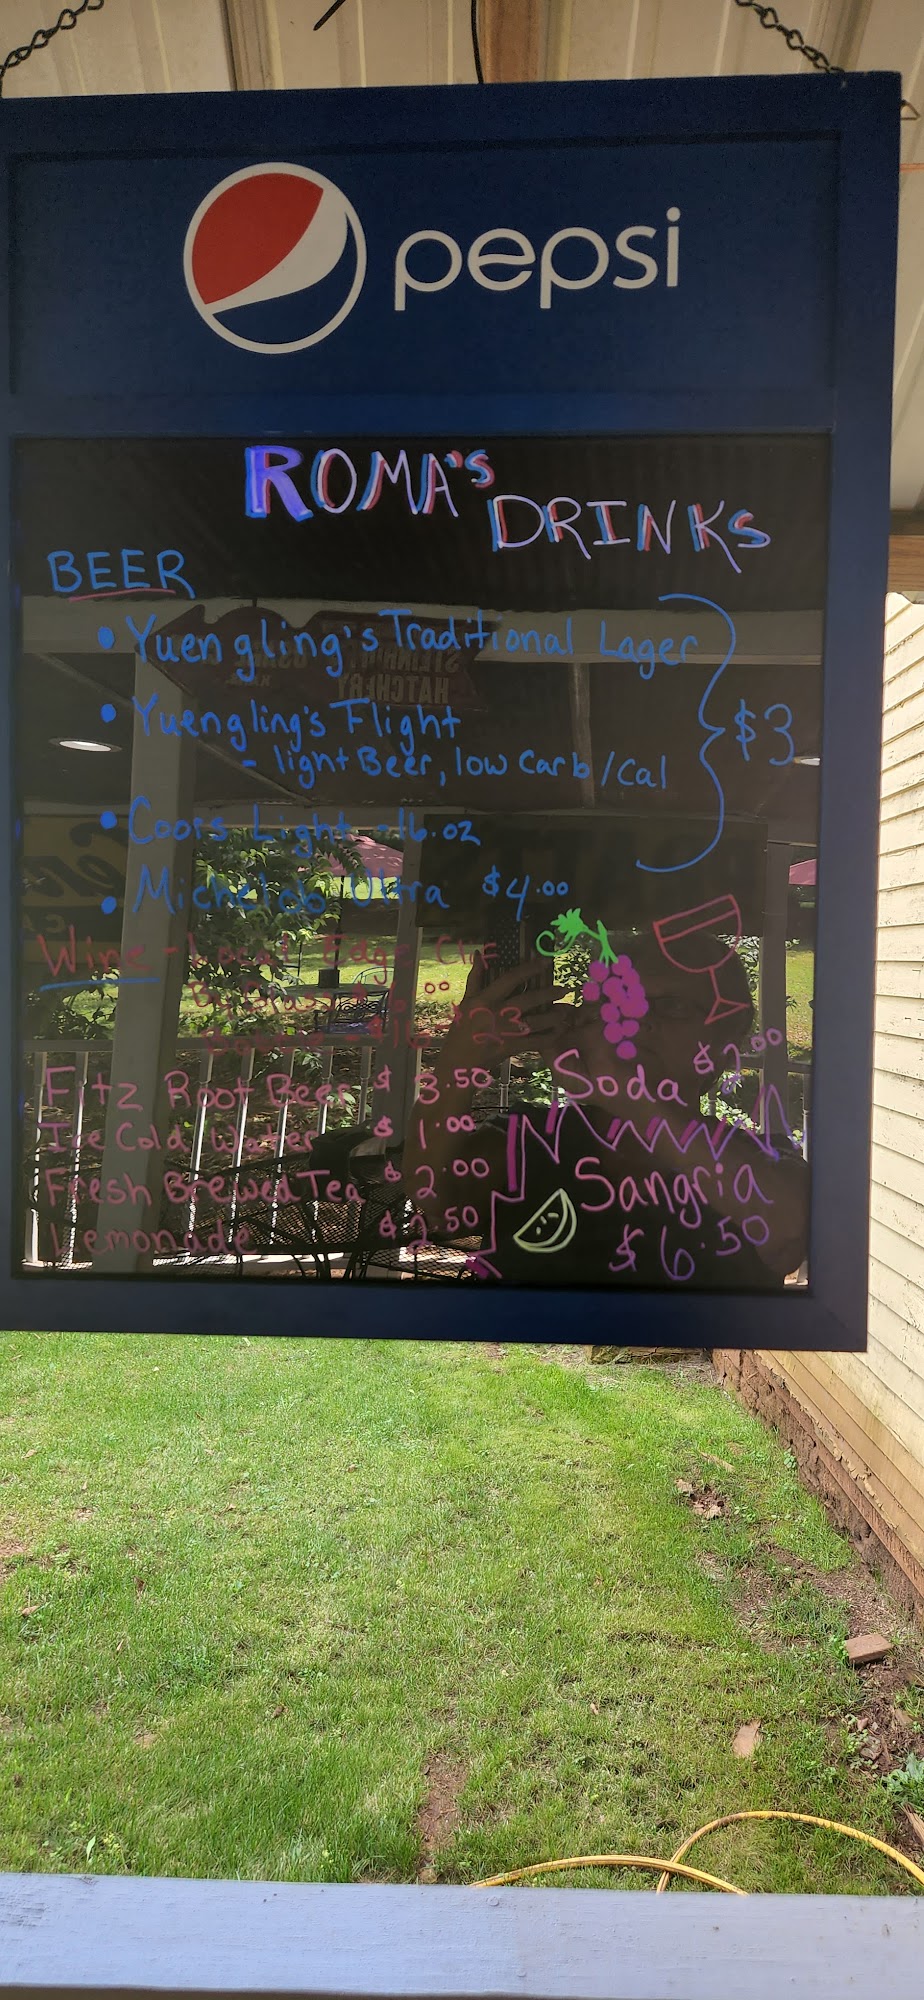 pepsi
ROMA'S
DRINKS
BEER
• Yuengling's Traditional Lager
• Yuengling's Flight
- light Beer, low Carb/Cal
• Coors Light - 16.oz
$3
• Michelob Ultra $4.00
Wine - Local Edge Clif
By Glass $6.00
Bottle - $16 - $23
Fitz Root Beer $3.50
Ice Cold Water $1.00
Fresh Brewed Tea $2.00
Lemonade $2.50
Soda $2.00
Sangria
$6.50
HATCHERY